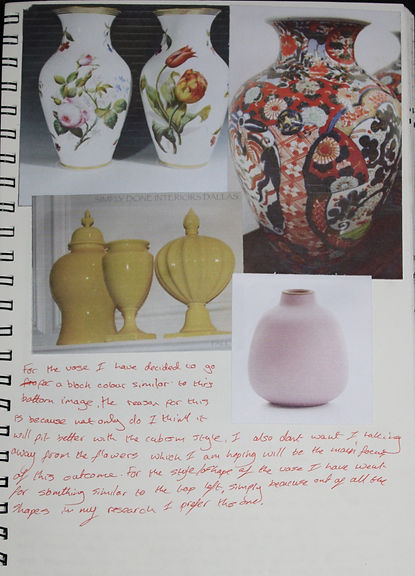 SIMPLY DONE INTERIORS DALLAS
For the vase I have decided to go
for a block colour similar to this
bottom image, the reason for this
is because not only do I think it
will fit better with the cubism style, I also dont want I taking
away from the flowers which I am hoping will be the main focus
of this outcome. For the style/shape of the vase I have went
for somthing similar to the top left, simply because out of all the
shapes in my research I prefer this one.